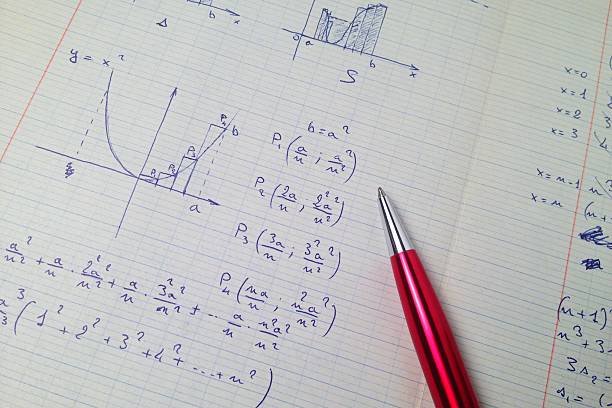 b x
Δ
o a b x
S
y = x²
P₁ P₂ P₃ P₄ b
a
b = a²
P₁ (a/n ; a²/n²)
P₂ (2a/n ; 2²a²/n²)
P₃ (3a/n ; 3²a²/n²)
P₄ (na/n ; n²a²/n²)
a²/n² + a/n · 2²a²/n² + a/n · 3²a²/n² + ... a/n · n²a²/n²
a³/n³ (1² + 2² + 3² + 4² + ... + n²)
x=0
x=1
x=2
x=3
x=n-1 n³
x=n (n+
(n+1)³
n³+3
3s₂ =
s₁ = (